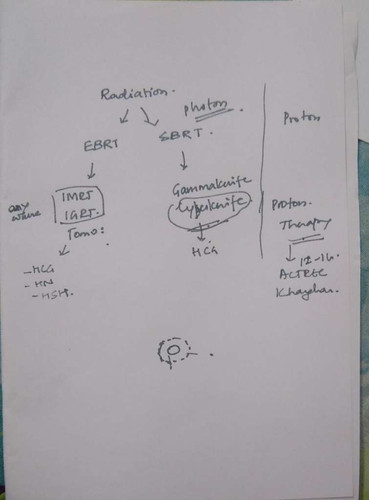 Radiation.
photon
Proton
EBRT
SBRT.
any where
IMRT
IGRT.
Tomo:
Gammaknife
Cyberknife
HCG
Proton
Therapy
12-16
ACTREC
Kharghar.
- HCG
- HN
- HSH.